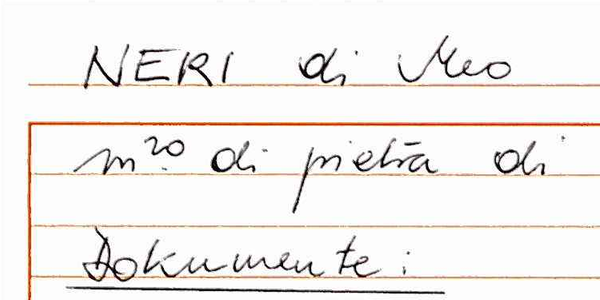 NERI di Meo
m^ro di pietra di
Dokumente: